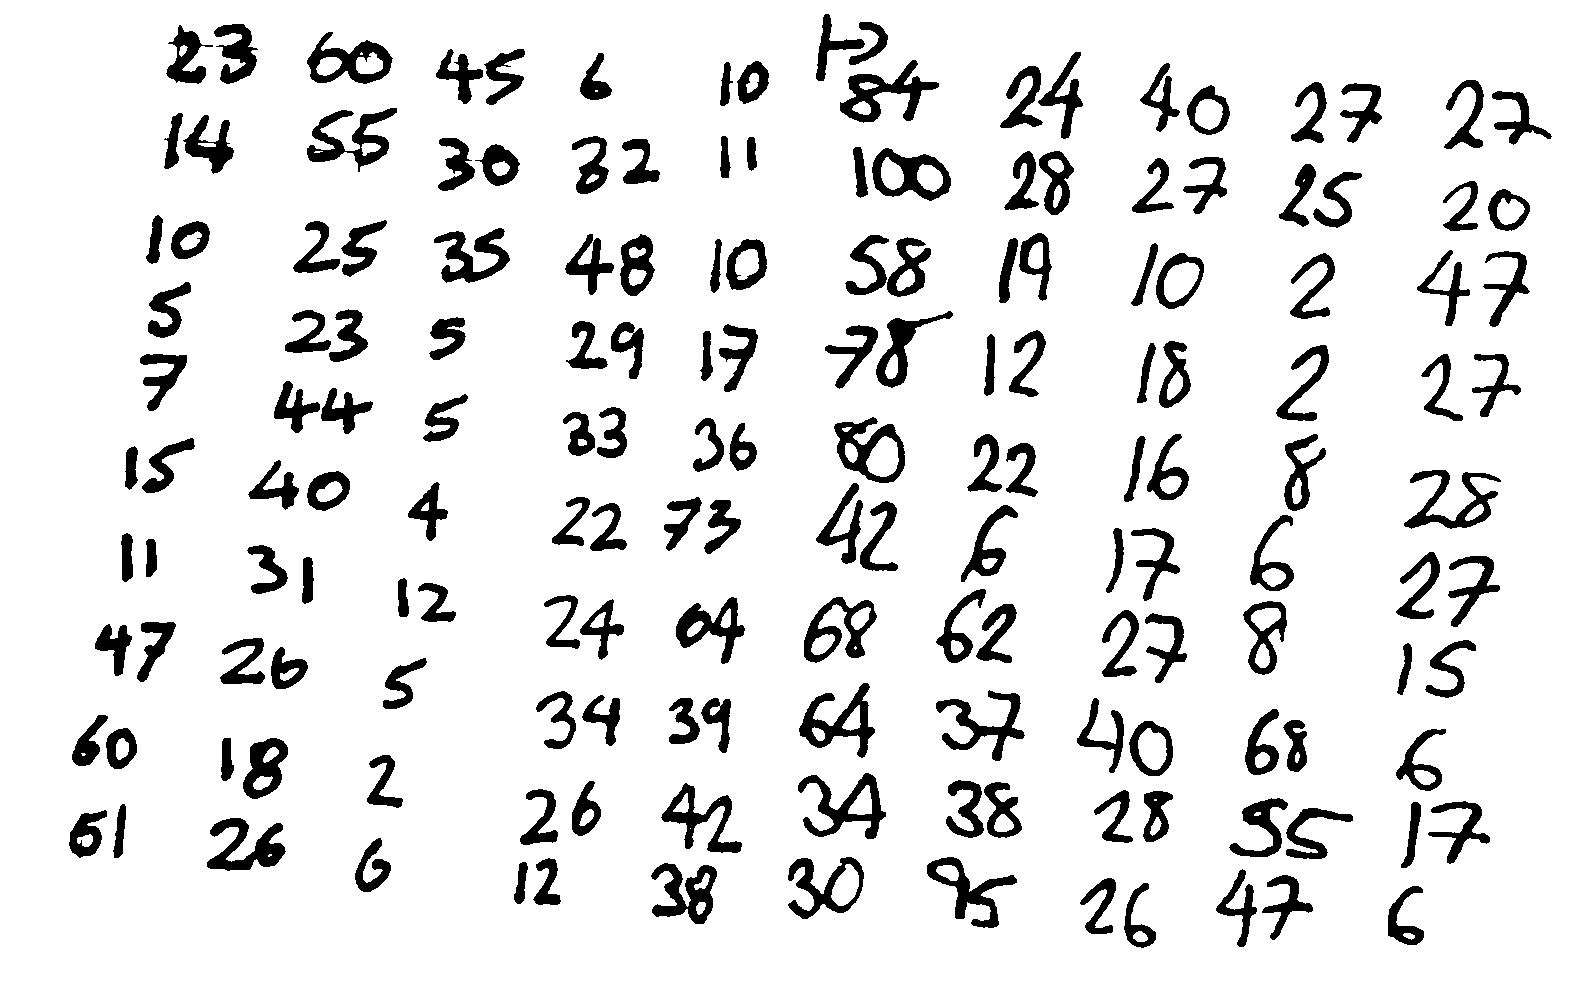 23 60 45 6 10 84 24 40 27 27
14 55 30 32 11 100 28 27 25 20
10 25 35 48 10 58 19 10 2 47
5 23 5 29 17 78 12 18 2 27
7 44 5 33 36 80 22 16 8 28
15 40 4 22 73 42 6 17 6 27
11 31 12 24 64 68 62 27 8 15
47 26 5 34 39 64 37 40 68 6
60 18 2 26 42 34 38 28 55 17
51 26 6 12 38 30 95 26 47 6